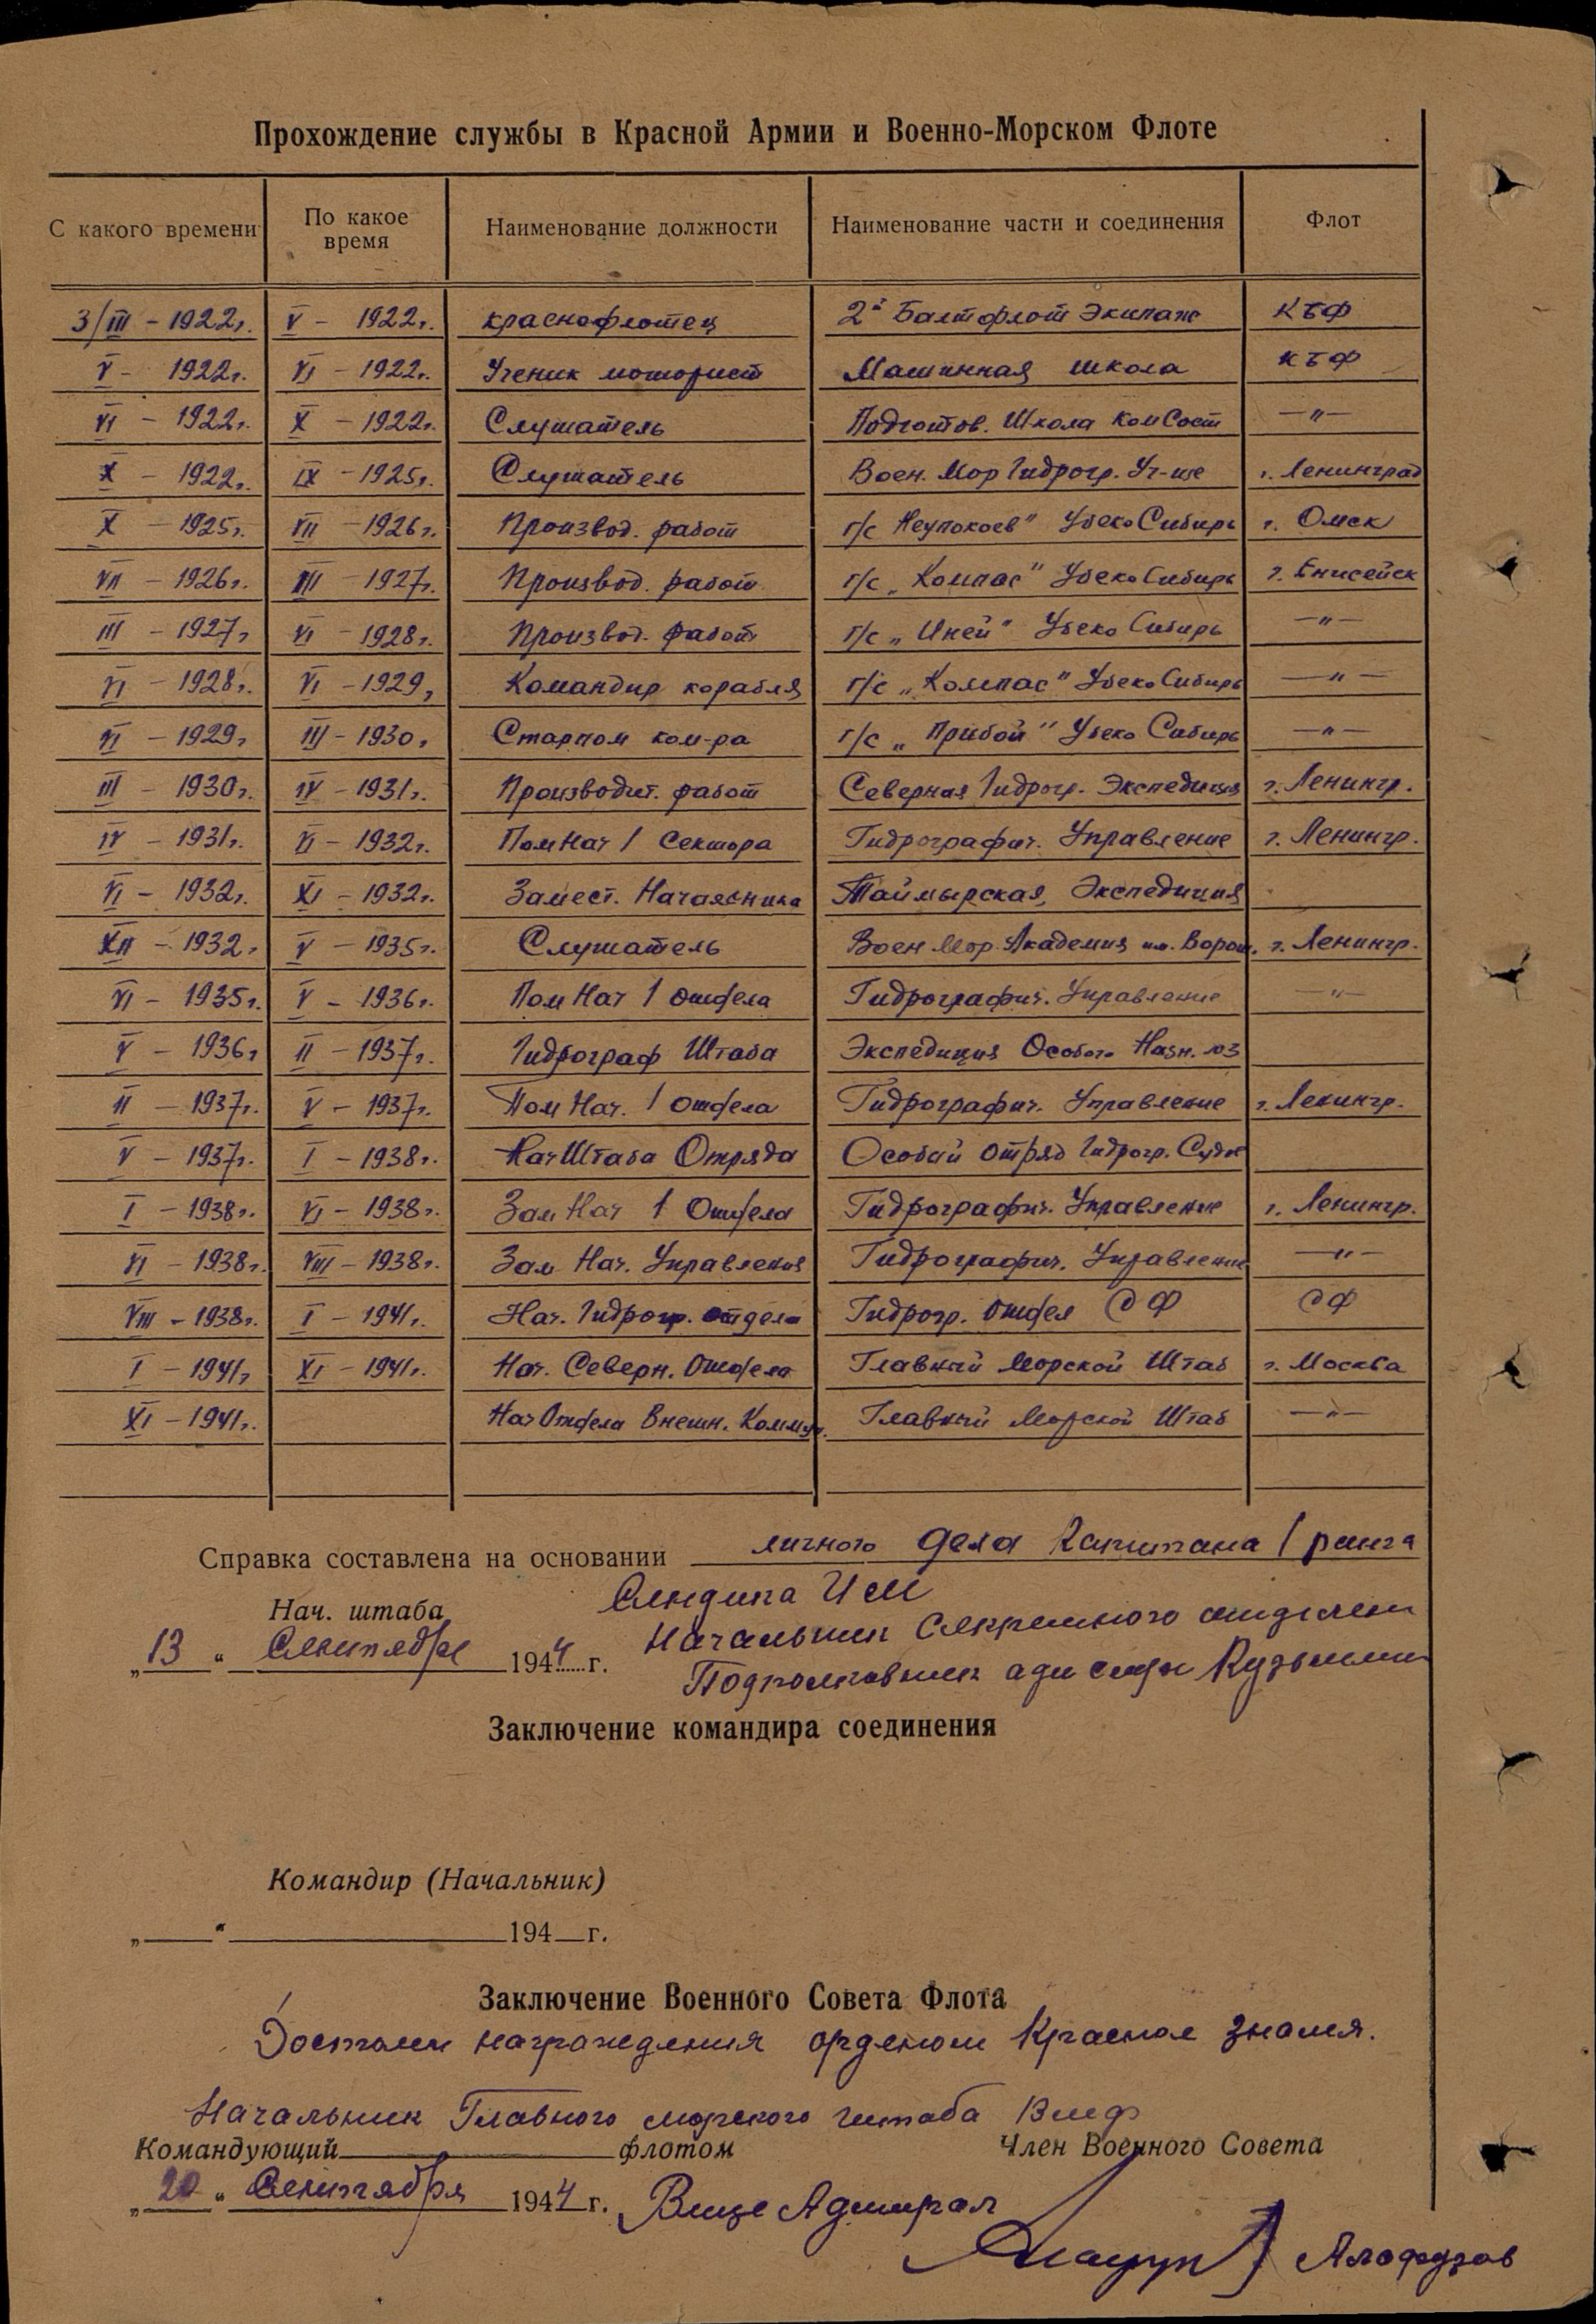 Прохождение службы в Красной Армии и Военно-Морском Флоте
С какого времени По какое время Наименование должности Наименование части и соединения Флот
3/III – 1922г. V – 1922г. краснофлотец 2й Балтфлот Экипаж КБФ
V – 1922г. VI – 1922г. Ученик моторист Машинная школа КБФ
VI – 1922г. X – 1922г. Слушатель Подготов. Школа КомСост —"—
X – 1922г. IX – 1925г. Слушатель Воен. Мор Гидрогр. Уч-ще г. Ленинград
X – 1925г. VII – 1926г. Производ. работ г/с Неупокоев" УбекоСибирь г. Омск
VII – 1926г. III – 1927г. Производ. работ г/с „Компас" УбекоСибирь г. Енисейск
III – 1927г VI – 1928г. Производ. работ г/с „Иней" Убеко Сибирь —"—
VI – 1928г. VI – 1929г Командир корабля г/с „Компас" УбекоСибирь —"—
VI – 1929г III – 1930г Старпом ком-ра г/с „Прибой" Убеко Сибирь —"—
III – 1930г. IV – 1931г. Производит. работ Северная Гидрогр. Экспедиция г. Ленингр.
IV – 1931г. VI – 1932г. ПомНач 1 Сектора Гидрографич. Управление г. Ленингр.
VI – 1932г. XI – 1932г. Замест. Начальника Таймырская Экспедиция
XII – 1932г V – 1935г. Слушатель Воен Мор Академия им. Ворош. г. Ленингр.
VI – 1935г. V – 1936г. Пом Нач 1 отдела Гидрографич. Управление —"—
V – 1936г II – 1937г. Гидрограф Штаба Экспедиция Особого Назн. №3
II – 1937г. V – 1937г. Пом Нач. 1 отдела Гидрографич. Управление г. Ленингр.
V – 1937г. I – 1938г. НачШтаба Отряда Особый отряд Гидрогр. Судов
I – 1938г. VI – 1938г. Зам Нач 1 Отдела Гидрографич. Управление г. Ленингр.
VI – 1938г. VIII – 1938г. Зам Нач. Управления Гидрографич. Управление —"—
VIII – 1938г. I – 1941г. Нач. Гидрогр. отдела Гидрогр. отдел СФ СФ
I – 1941г XI – 1941г. Нач. Северн. Отдела Главный Морской Штаб г. Москва
XI – 1941г. НачОтдела Внешн. Коммун. Главный Морской Штаб —"—
Справка составлена на основании личного дела Капитана 1 ранга
Сендика ИМ
Нач. штаба Начальник Секретного отделен
„13" Сентября 1944 г. Подполковник адм службы Кузьмин
Заключение командира соединения
Командир (Начальник)
„ " 194 г.
Заключение Военного Совета Флота
Достоин награждения орденом Красное знамя.
Начальник Главного морского штаба Вмф
Командующий флотом Член Военного Совета
„20" Сентября 1944 г. Вице Адмирал
Алафузов